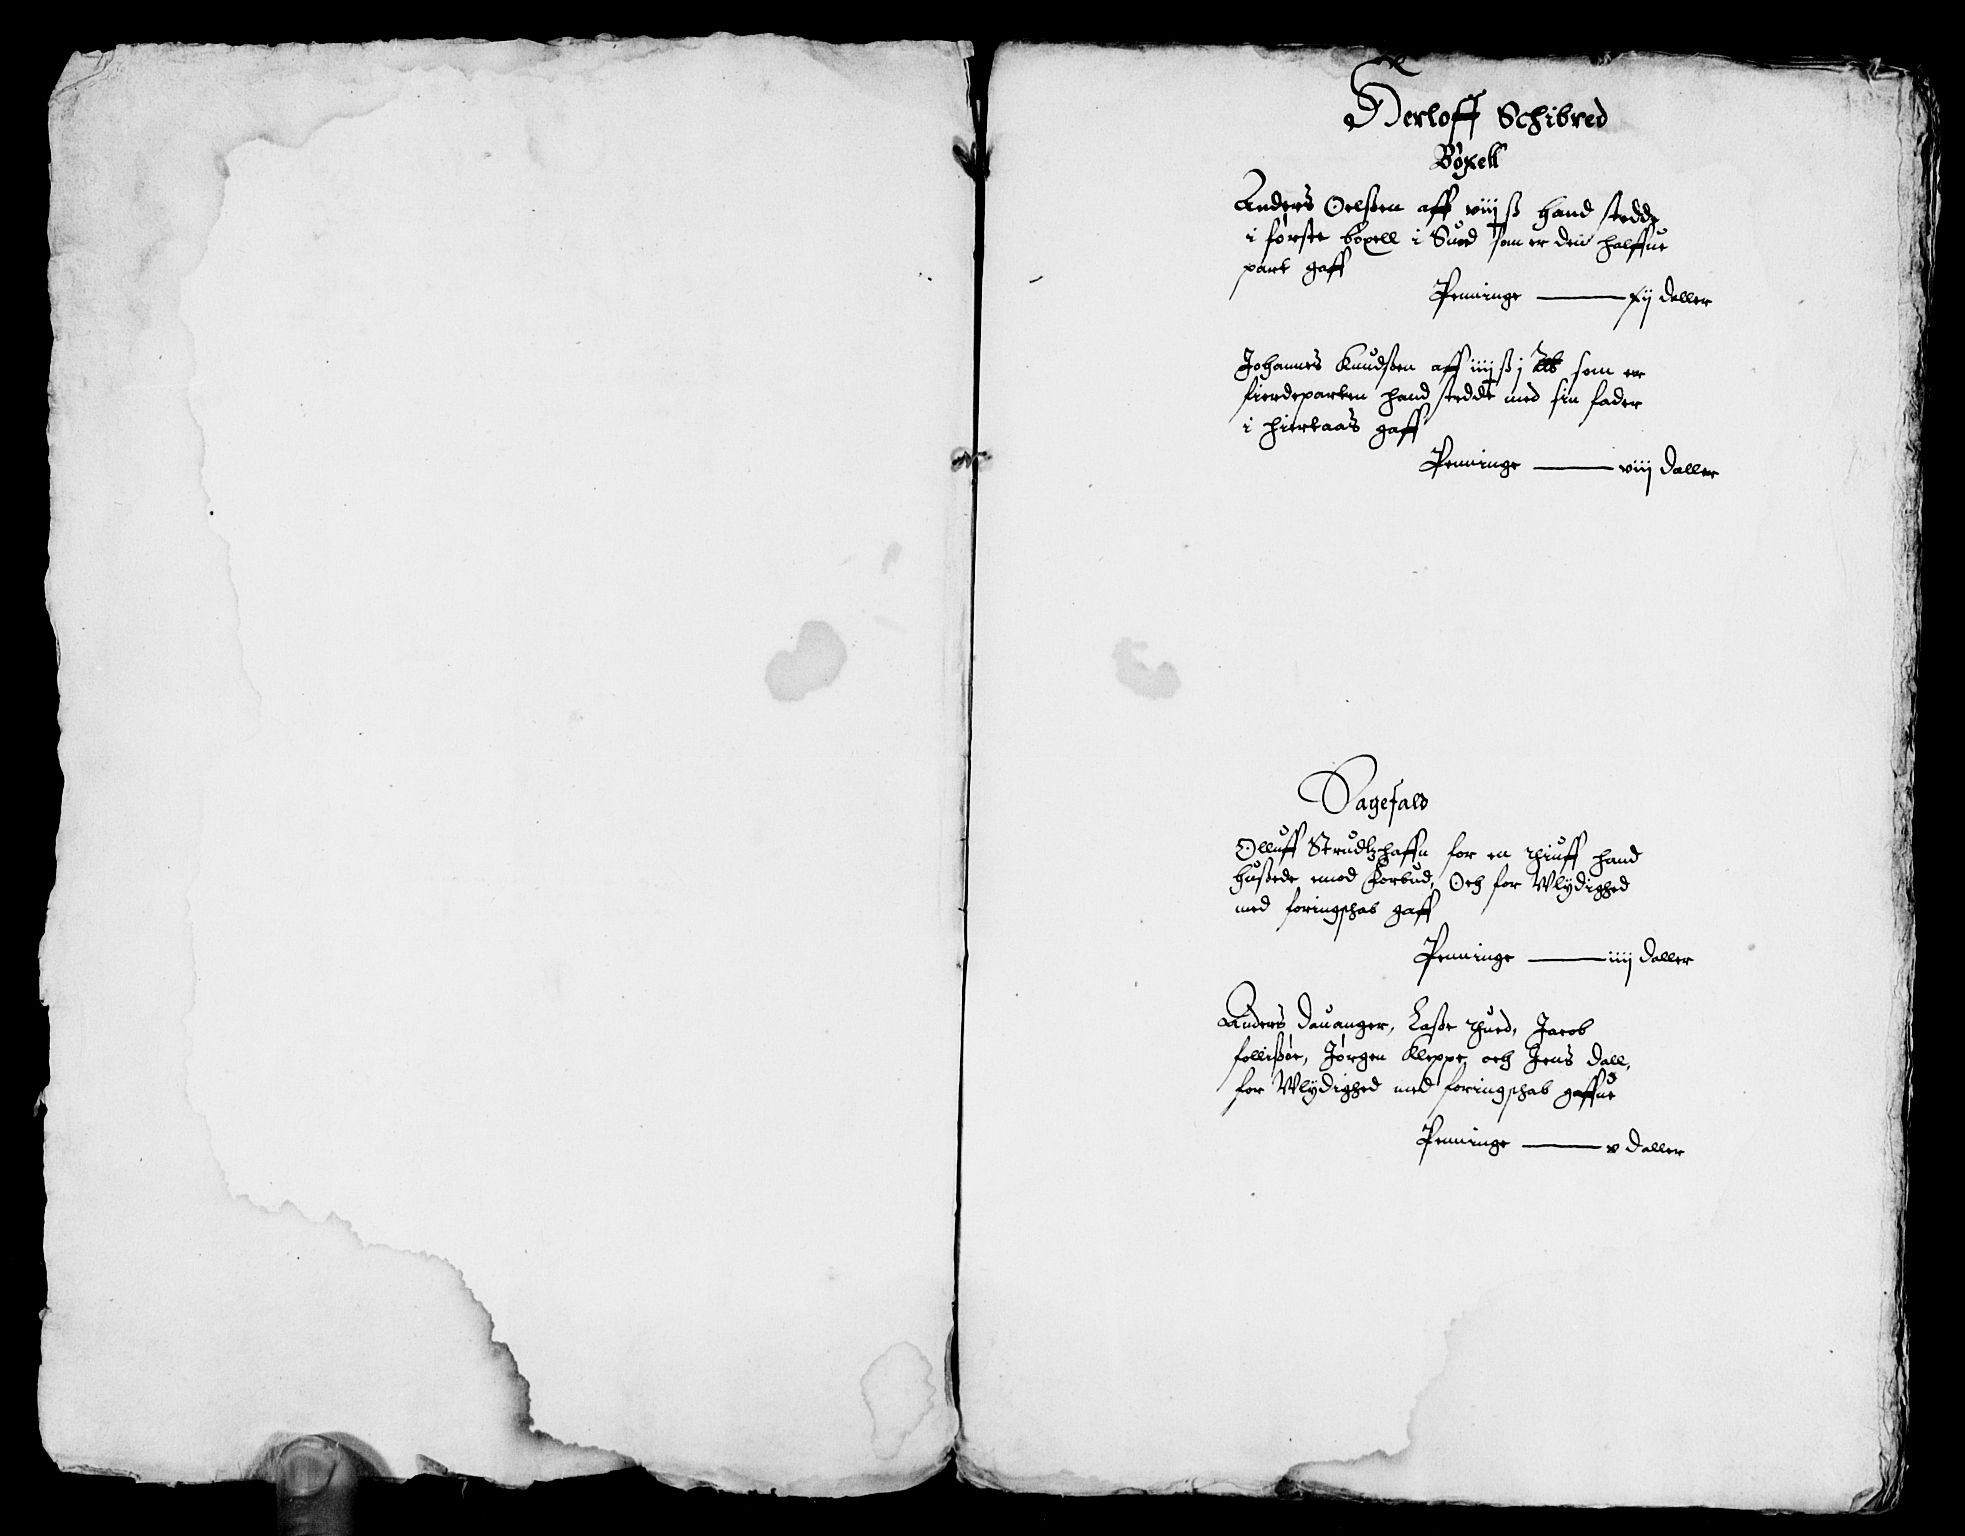 Herloff Schibred
Bøxell
Anders Oelßen aff viijß hand stedde
i første boxell i Sued som er den halffue
part gaff
Penninge ——— xij daller
Johannes Knudßen aff iiijß j som er
fierdeparten hand stedde med sin fader
i hiertaas gaff
Penninge ——— viij daller
Sagefald
Olluff Strudtzhaffn for en thiuff hand
hußede emod Forbud, Och for Wlydighed
med foringschab gaff
Penninge ——— iiij daller
Anders Dauanger, Laße Tued, Jacob
follißøe, Jørgen Kleppe, och Jens Dall,
for Wlydighed med foringschab gaffue
Penninge ——— v daller